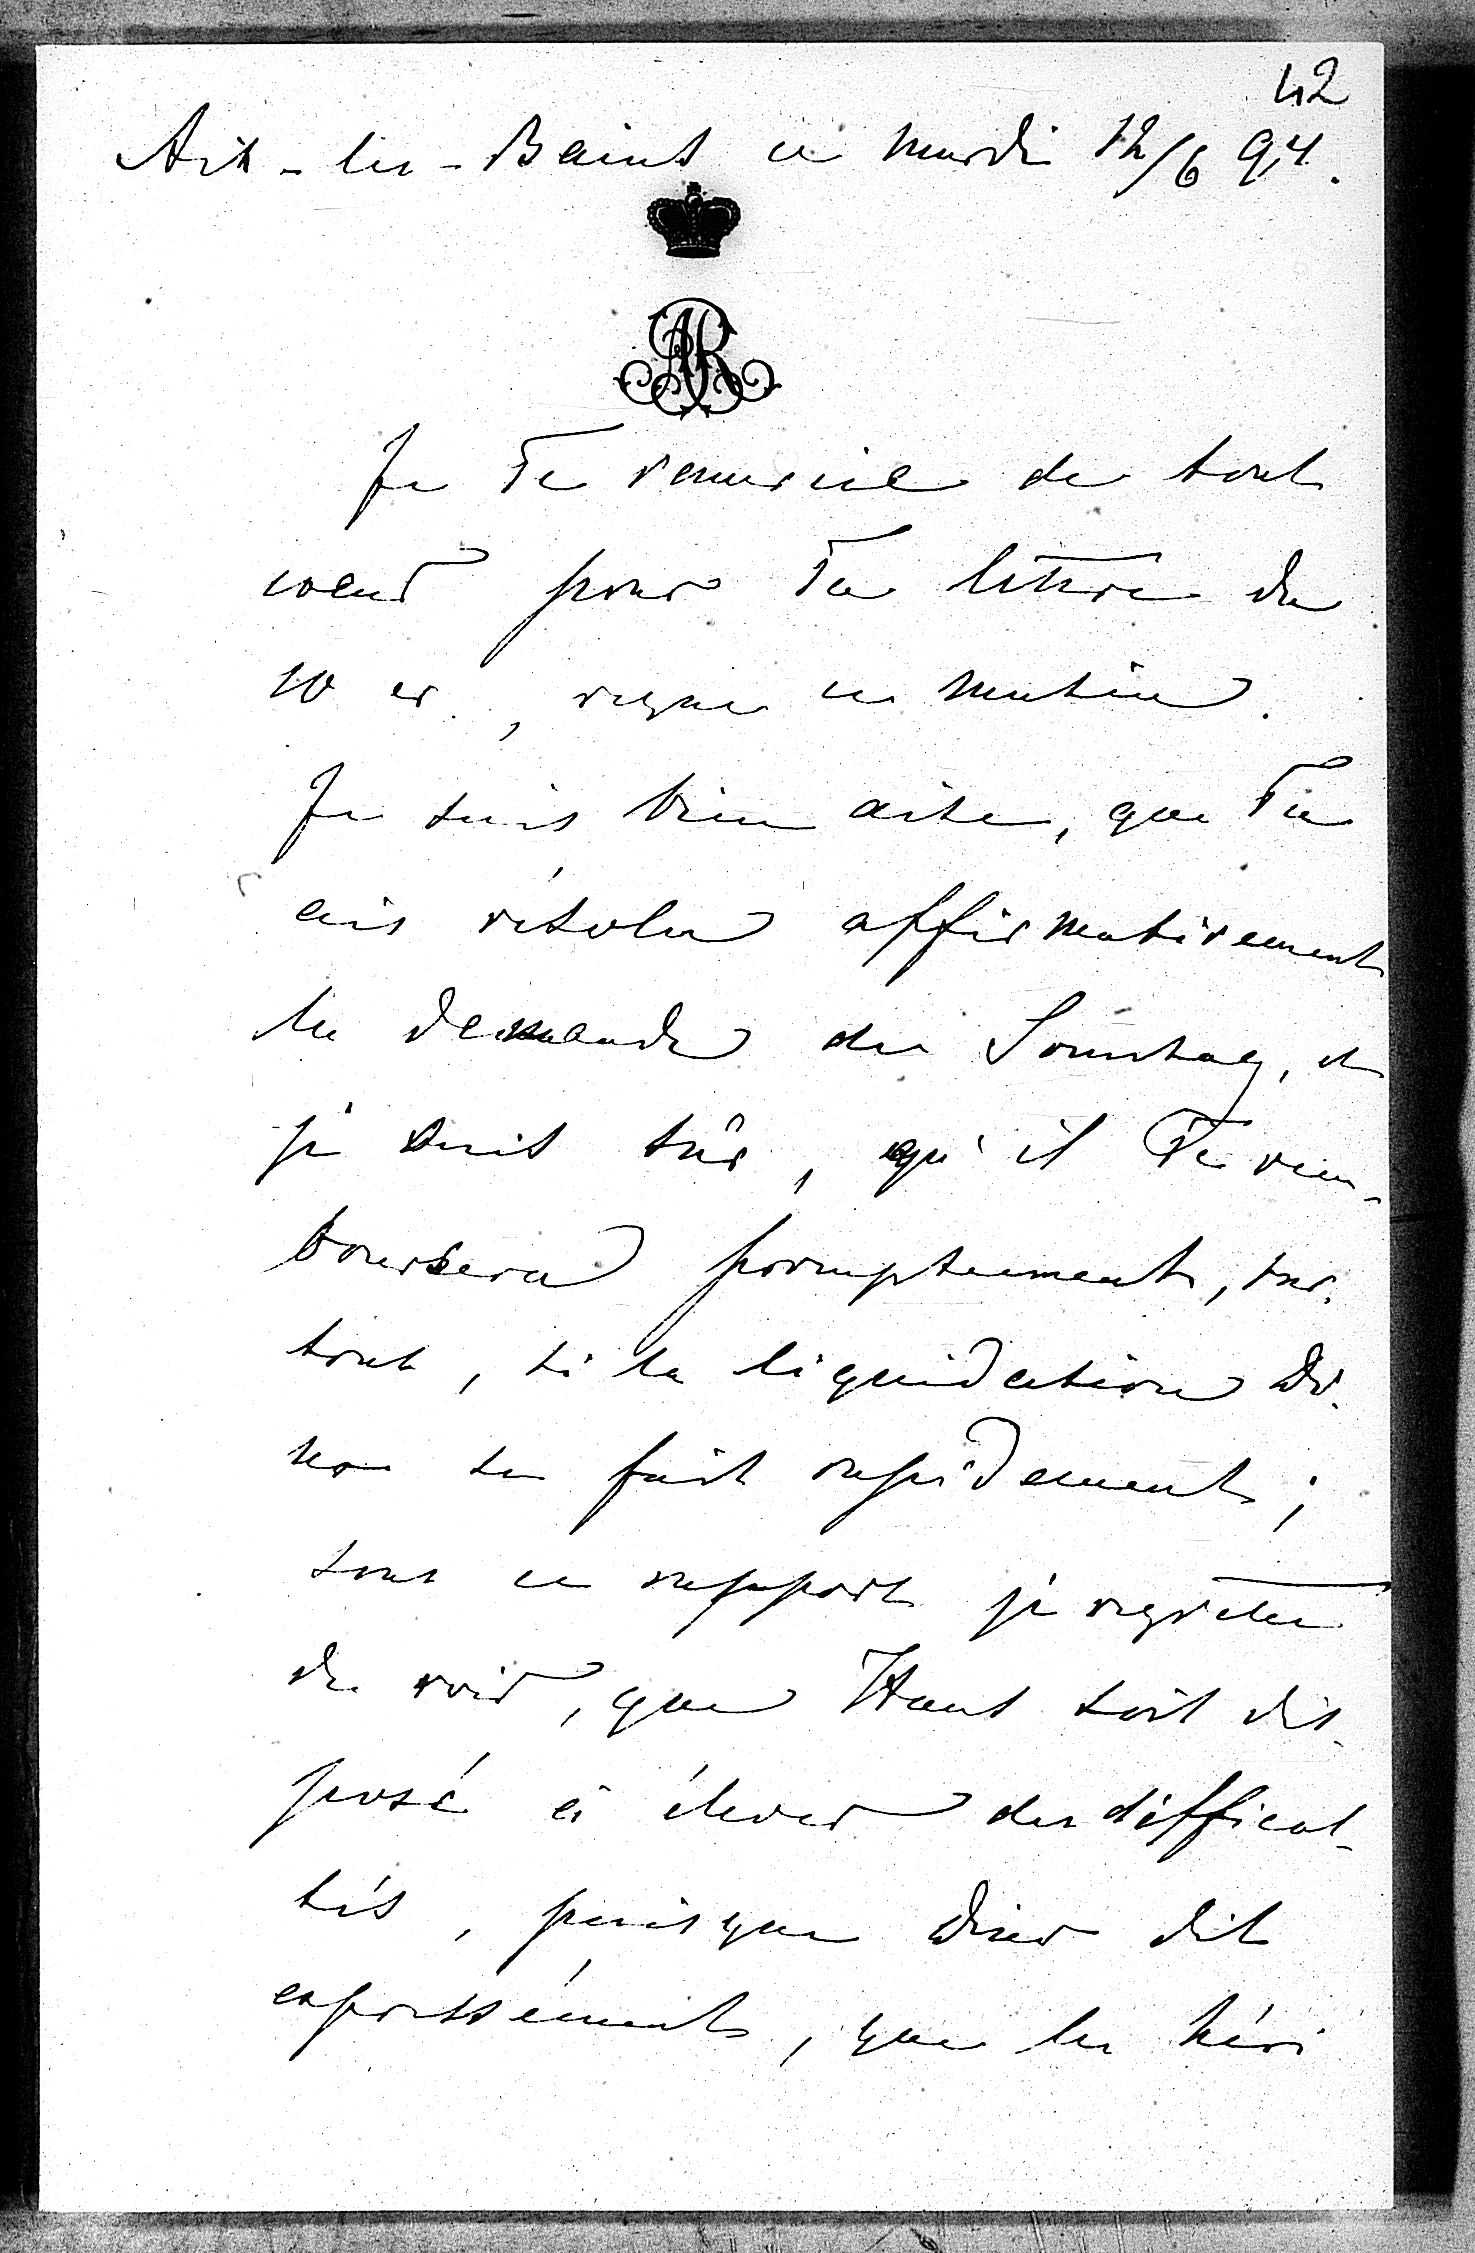 42
Aix-les-Bains ce mardi 12/6 94.
AR
Je Te remercie de tout
coeur pour Ta lettre du
10 cr., reçue ce matin.
Je suis bien aise, que Tu
ais résolu affirmativement
la demande de Sonntag, et
je suis sûr, qu'il Te rem-
boursera promptement, sur-
tout, si la liquidation
se fait rapidement;
sous ce rapport je regrette
de voir, que Hans soit dis-
posé à élever des difficul-
tés, puisque dit
expressément, que les héri